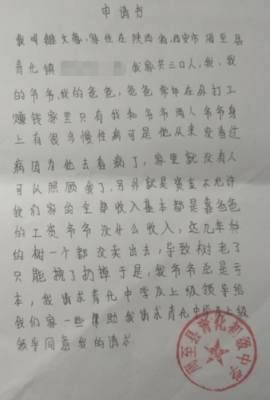 申请书
我叫 文 家住在陕西省西安市周至县
青化镇 我家共三口人,我,我
的爷爷,我的爸爸,爸爸常年在外打工
赚钱家里只有我和爷爷两人爷爷身
上有很多慢性病可是他从来没看过
病因为他去看病了,家里就没有人
可以照顾我了,另外就是资金不允许
我们家的全部收入基本都是靠爸爸
的工资爷爷没什么收入,这几年种
的树一个都没卖出去,导致树老了
只能挖了扔掉于是,我爷爷总是亏
本,我请求青化中学及上级领导给
我们家一些帮助我请求青化中学及上级
领导同意我的请求
周至县青化初级中学